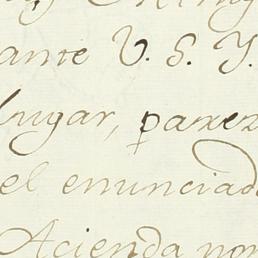 ante V. S. Y.
lugar, parez
el enunciad
Acienda por